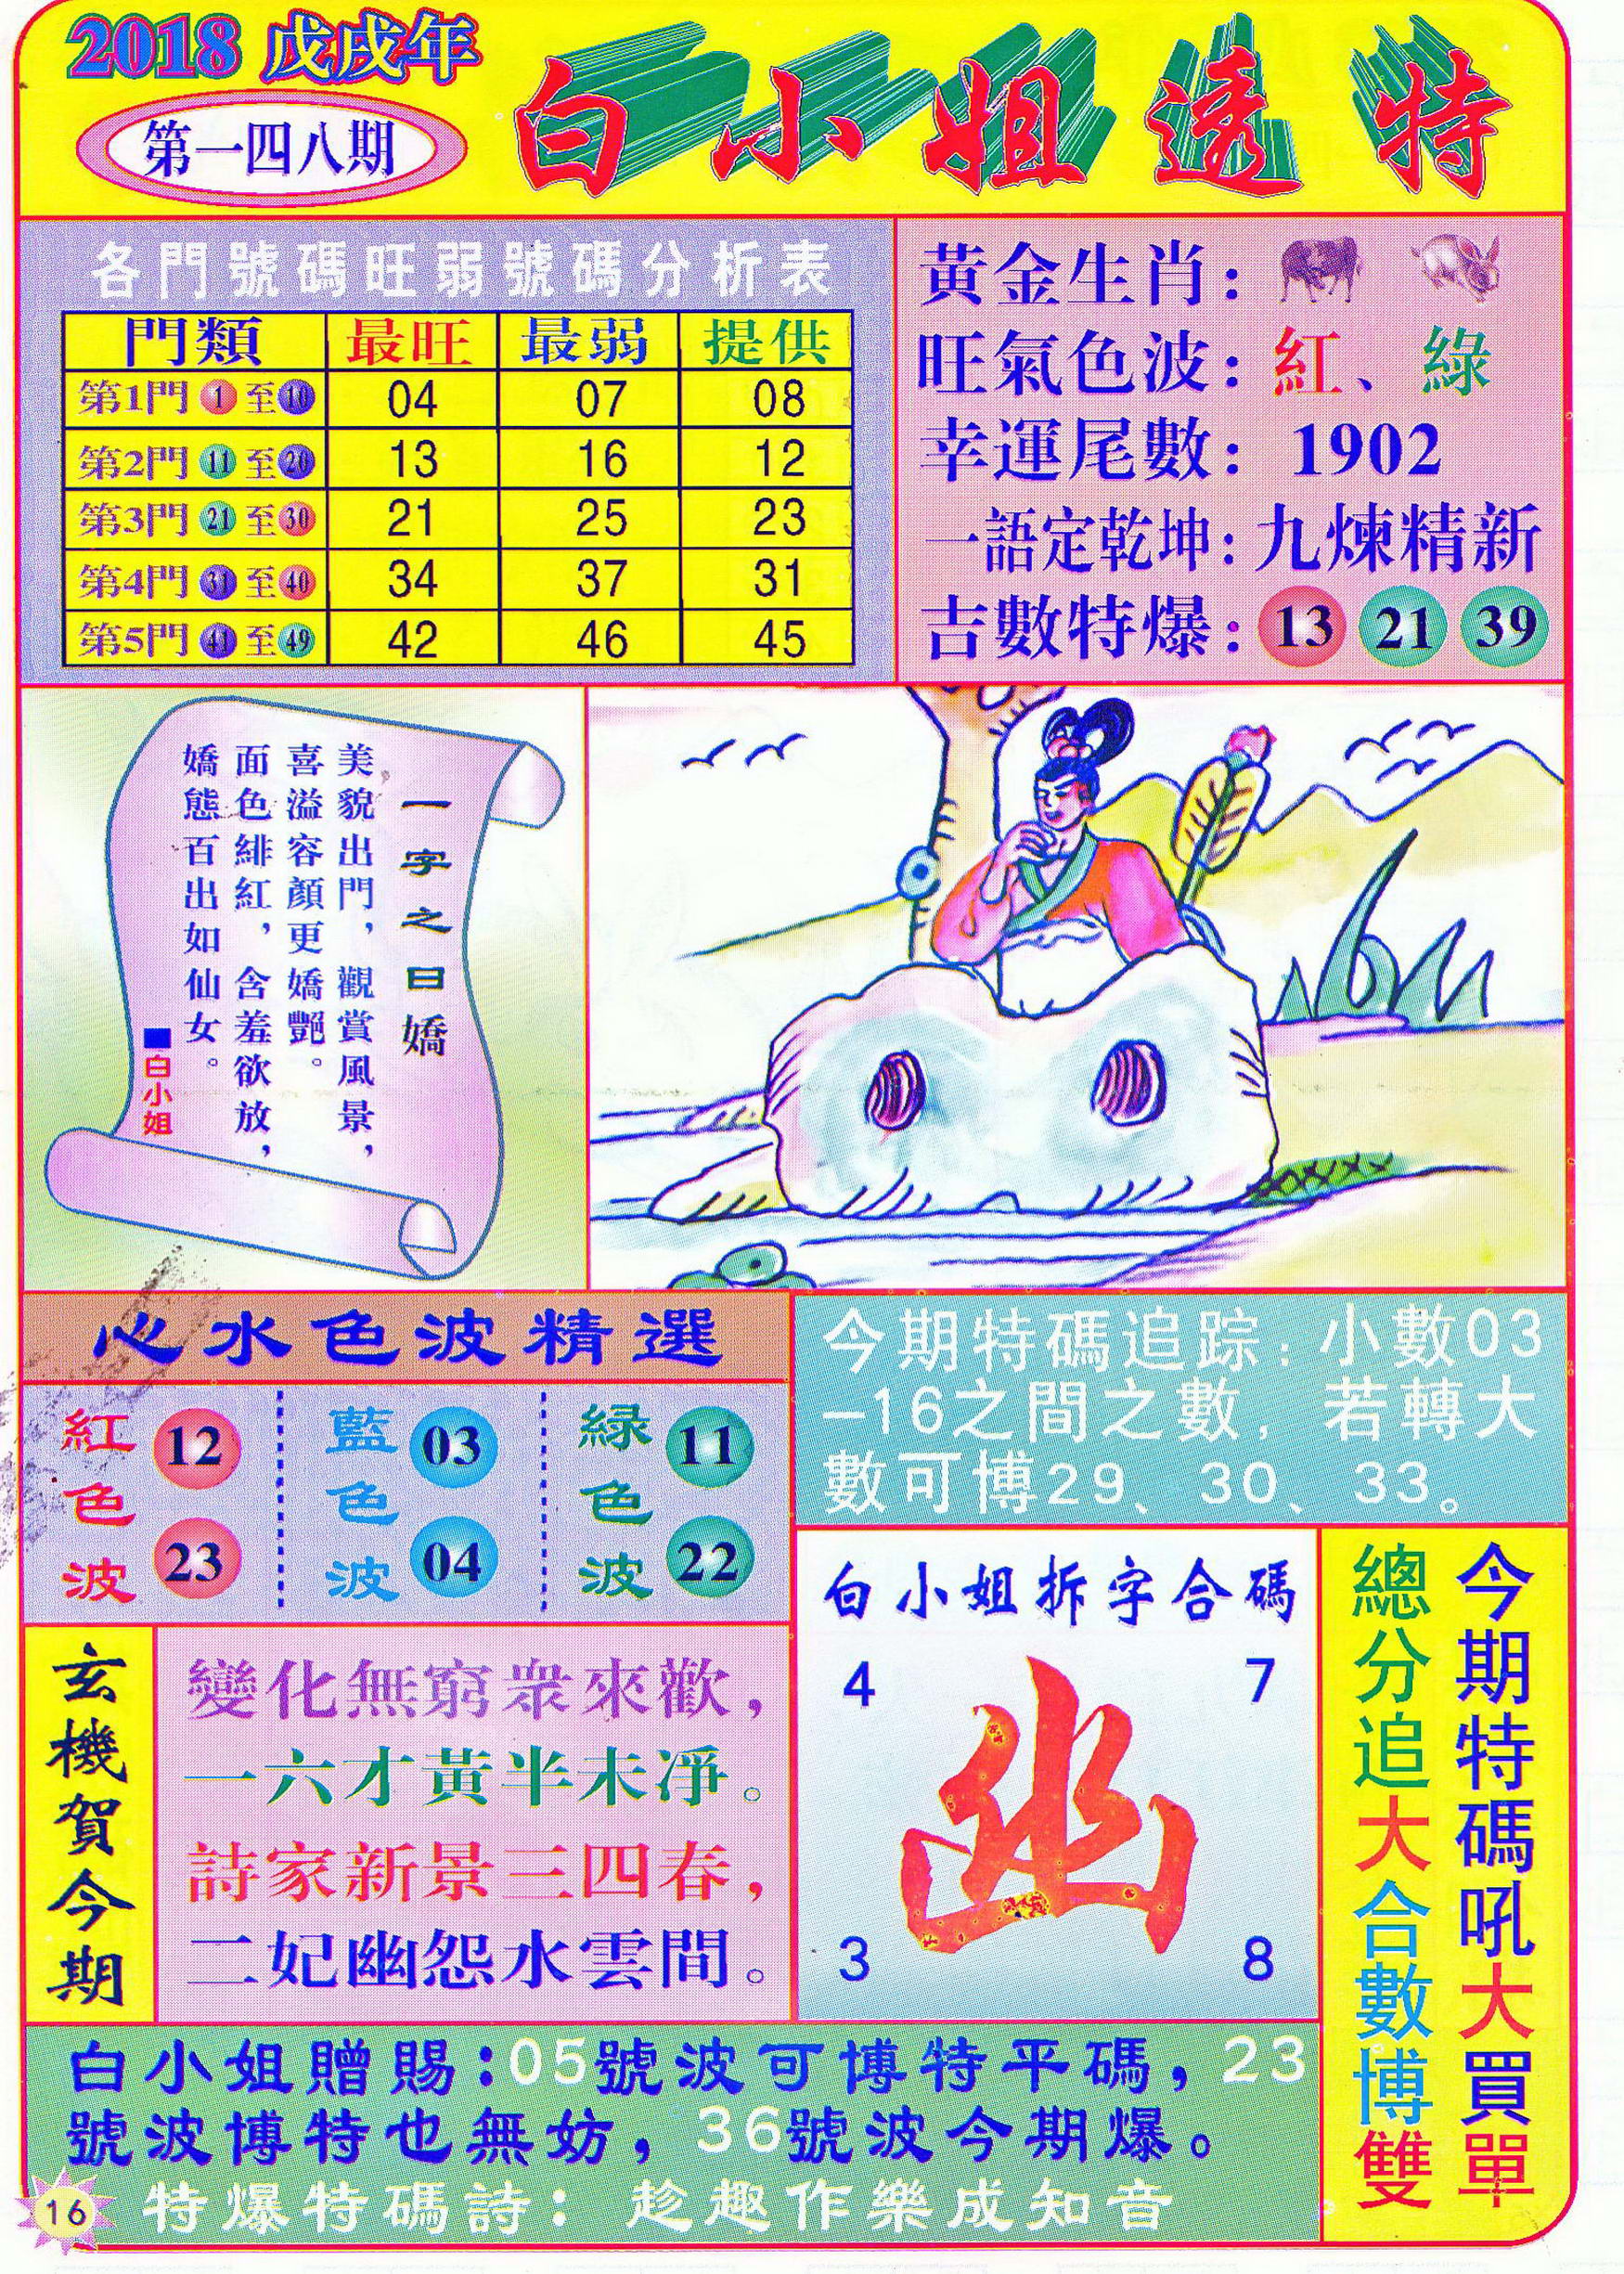 2018 戊戌年
第一四八期
白小姐透特
各門號碼旺弱號碼分析表
門類 最旺 最弱 提供
第1門 1 至 10 04 07 08
第2門 11 至 20 13 16 12
第3門 21 至 30 21 25 23
第4門 31 至 40 34 37 31
第5門 41 至 49 42 46 45
黃金生肖：
旺氣色波：紅、綠
幸運尾數：1902
一語定乾坤：九煉精新
吉數特爆：13 21 39
一字之曰嬌
美貌出門，觀賞風景，
喜溢容顏更嬌艷。
面色緋紅，含羞欲放，
嬌態百出如仙女。
■白小姐
心水色波精選
紅色波 12 23
藍色波 03 04
綠色波 11 22
今期特碼追踪：小數03
-16之間之數，若轉大
數可博29、30、33。
玄機賀今期
變化無窮衆來歡，
一六才黃半未淨。
詩家新景三四春，
二妃幽怨水雲間。
白小姐拆字合碼
4 7
幽
3 8
今期特碼吼大買單
總分追大合數博雙
白小姐贈賜：05號波可博特平碼，23
號波博特也無妨，36號波今期爆。
特爆特碼詩：趁趣作樂成知音
16